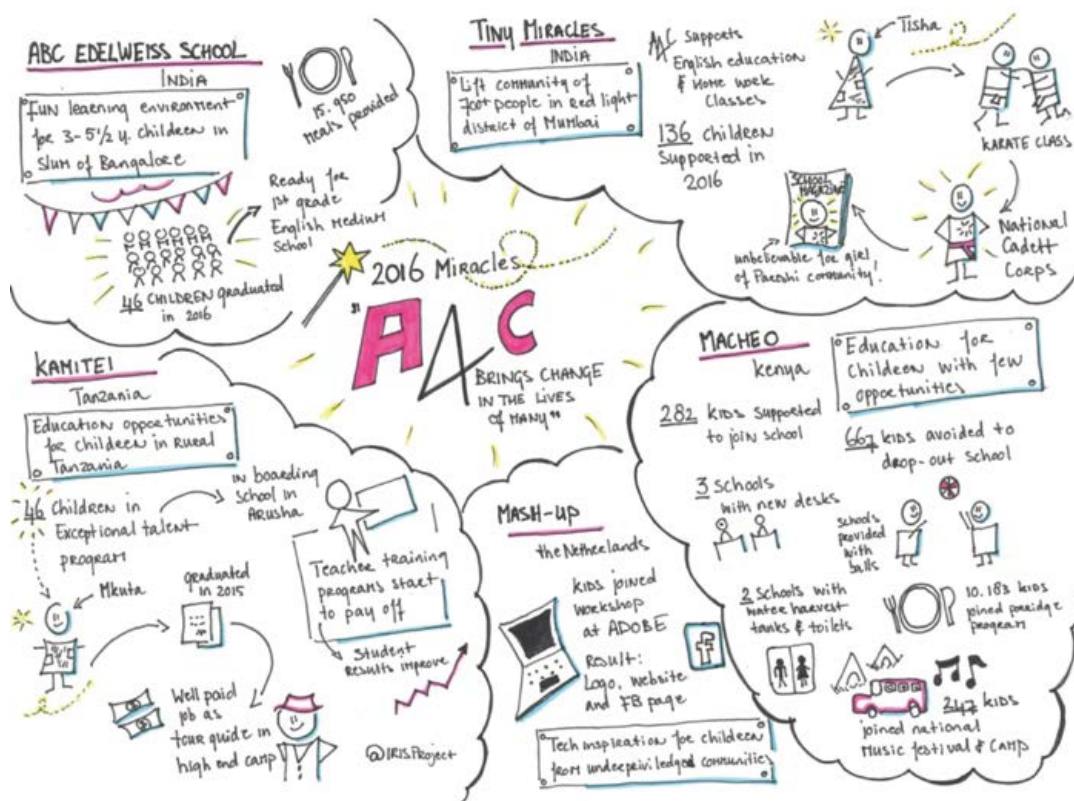 ABC EDELWEISS SCHOOL
INDIA
FUN learning environment
for 3-5½ y. children in
Slum of Bangalore
15.950
meals provided
Ready for
1st grade
English Medium
School
46 CHILDREN graduated
in 2016
TINY MIRACLES
INDIA
Lift community of
700+ people in Red light
district of Mumbai
A4C supports
English education
& Home work
Classes
136 children
Supported in
2016
Tisha
KARATE CLASS
National
Cadett
Corps
SCHOOL
MAGAZINE
unbelievable for girl
of Pardhi community!
2016 Miracles
"A4C
BRINGS CHANGE
IN THE LIVES
OF MANY"
KAMITEI
Tanzania
Education opportunities
for children in Rural
Tanzania
46 Children in
Exceptional talent
program
in boarding
school in
Arusha
Mkuta
graduated
in 2015
Well paid
job as
tour guide in
high end camp
Teacher training
programs start
to pay off
Student
Results improve
@IRISProject
MASH-UP
the Netherlands
KIDS joined
workshop
at ADOBE
RESULT:
Logo, website
and FB page
f
Tech inspiration for children
from underpriviledged communities
MACHEO
Kenya
Education for
Children with few
opportunities
282 kids supported
to join school
667 kids avoided to
drop-out school
3 schools
with new desks
Schools
provided
with
balls
2 schools with
water harvest
tanks & toilets
10.183 kids
joined porridge
program
247 kids
joined national
Music festival & camp